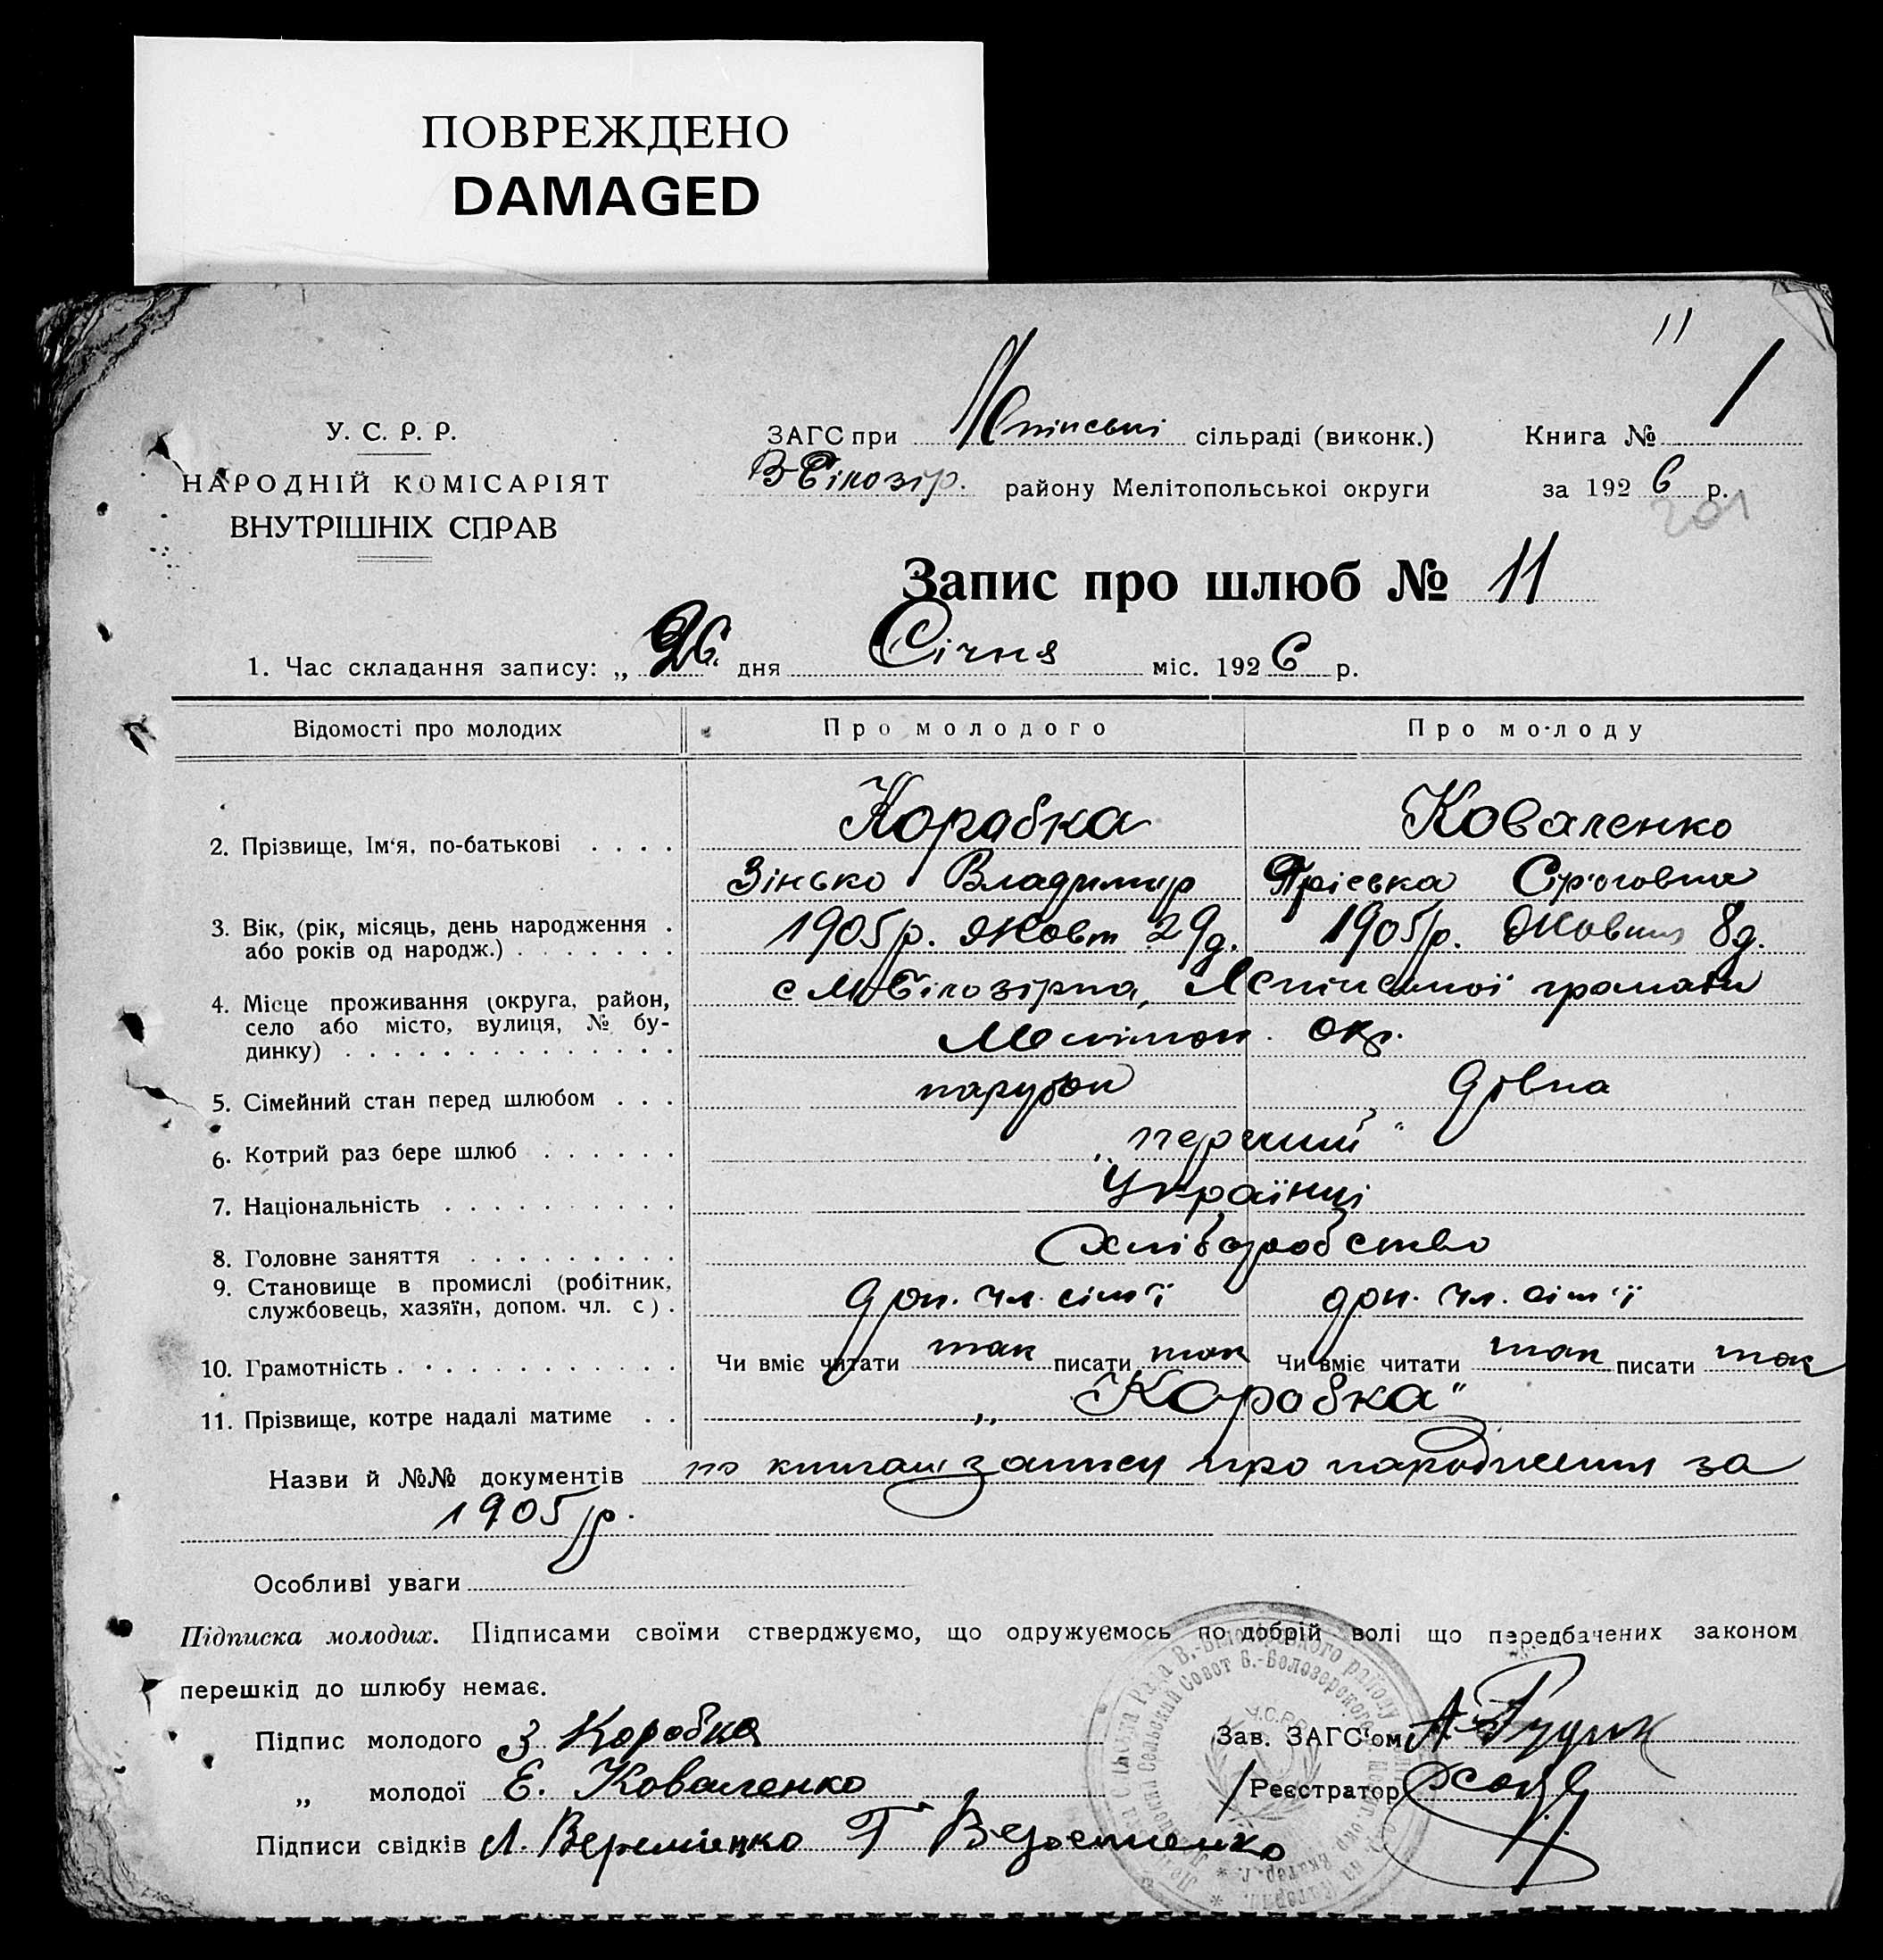 ПОВРЕЖДЕНО
DAMAGED
11
У. С. Р. Р.
НАРОДНІЙ КОМІСАРІЯТ
ВНУТРІШНІХ СПРАВ
ЗАГС при сільраді (виконк.) Книга № 1
В Білозір. району Мелітопольської округи за 1926 р.
201
Запис про шлюб № 11
1. Час складання запису: „ 26 дня Січня міс. 1926 р.
Відомості про молодих Про молодого Про молоду
2. Прізвище, Ім'я, по-батькові . . . . Коробка Коваленко
Зінько Владимир Пріська
3. Вік, (рік, місяць, день народження . або років од народж.) . . . . . . . 1905 р. Жовт 29 д. 1905 р. Жовтня 8 д.
4. Місце проживання (округа, район, село або місто, вулиця, № будинку) . . . . . . . . . . . . . . с М Білозірка, громади
Мелітоп. окр.
5. Сімейний стан перед шлюбом . . . парубок дівка
6. Котрий раз бере шлюб . . . . . . „перший"
7. Національність . . . . . . . . . . Українці
8. Головне заняття . . . . . . . . . Хліборобство
9. Становище в промислі (робітник, службовець, хазяїн, допом. чл. с) . доп. чл. сім'ї доп. чл. сім'ї
10. Грамотність . . . . . . . . . . . . Чи вміє читати так писати так Чи вміє читати так писати так
11. Прізвище, котре надалі матиме . . „Коробка"
Назви й №№ документів по книгам запису про народження за
1905 р.
Особливі уваги
Підписка молодих. Підписами своїми стверджуємо, що одружуємось по добрій волі що передбачених законом
перешкід до шлюбу немає.
Підпис молодого З Коробка Зав. ЗАГС'ом А
„ молодої Е. Коваленко Реєстратор
Підписи свідків Л. Веремієнко Г